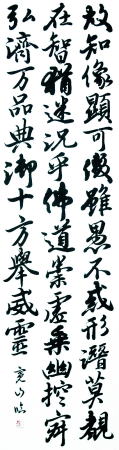 故知像顯可徵雖愚不惑形潛莫覩
在智猶迷況乎佛道崇虛乗幽控寂
弘濟万品典御十方舉威靈
山臨